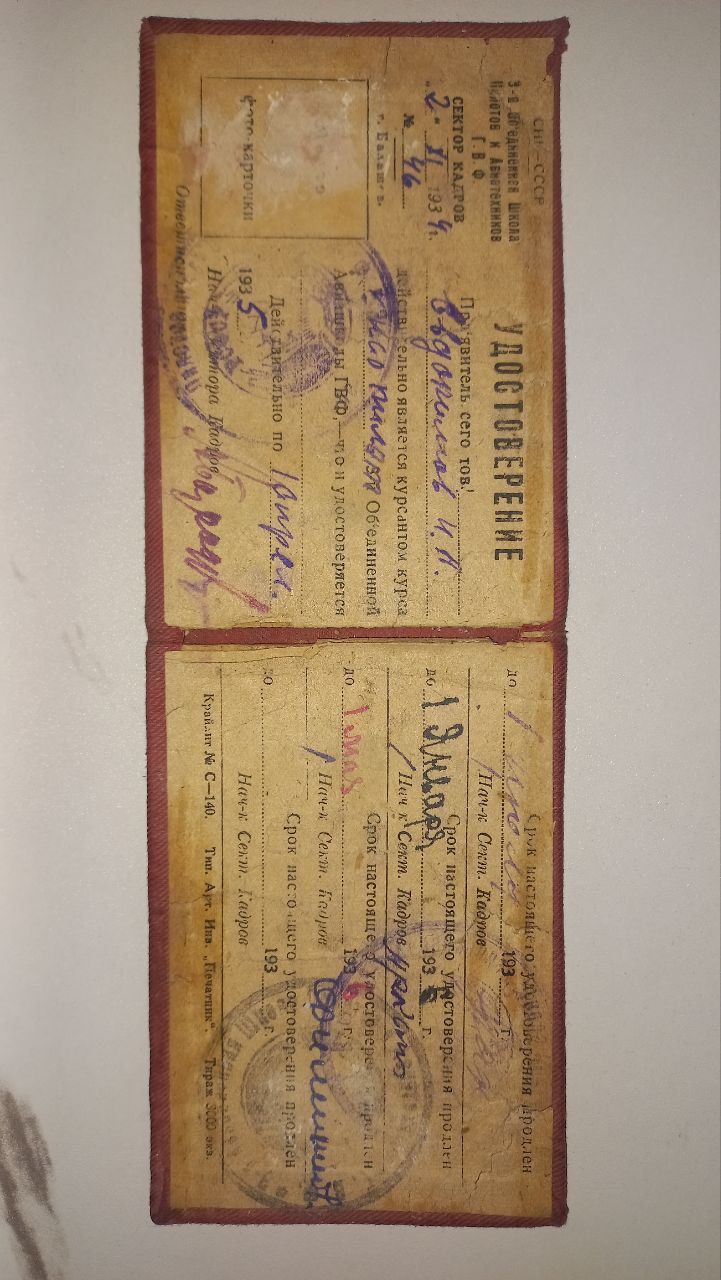 СНК—СССР
3-я Объединенная Школа
Пилотов и Авиотехников
Г. В. Ф.
СЕКТОР КАДРОВ
„2“ XI 1934 г.
№ 46
г. Балашов.
фото-карточки
УДОСТОВЕРЕНИЕ
Пред'явитель сего тов.
Евдокимов И. Н.
действительно является курсантом курса
Об'единенной
Авиашколы ГВФ,—что и удостоверяется
Действительно по 1 апрел.
1935
Нач. Сектора Кадров
Срок настоящего удостоверения продлен
до 1 193 г.
Нач-к Сект. Кадров
Срок настоящего удостоверения продлен
до 1 Января 1936 г.
Нач-к Сект. Кадров
Срок настоящего удостоверения продлен
до 1 мая 1936 г.
Нач-к Сект. Кадров
Срок настоящего удостоверения продлен
до 193 г.
Нач-к Сект. Кадров
Крайлит № С—140. Тип. Арт. Инв. „Печатник“ Тираж 3000 экз.